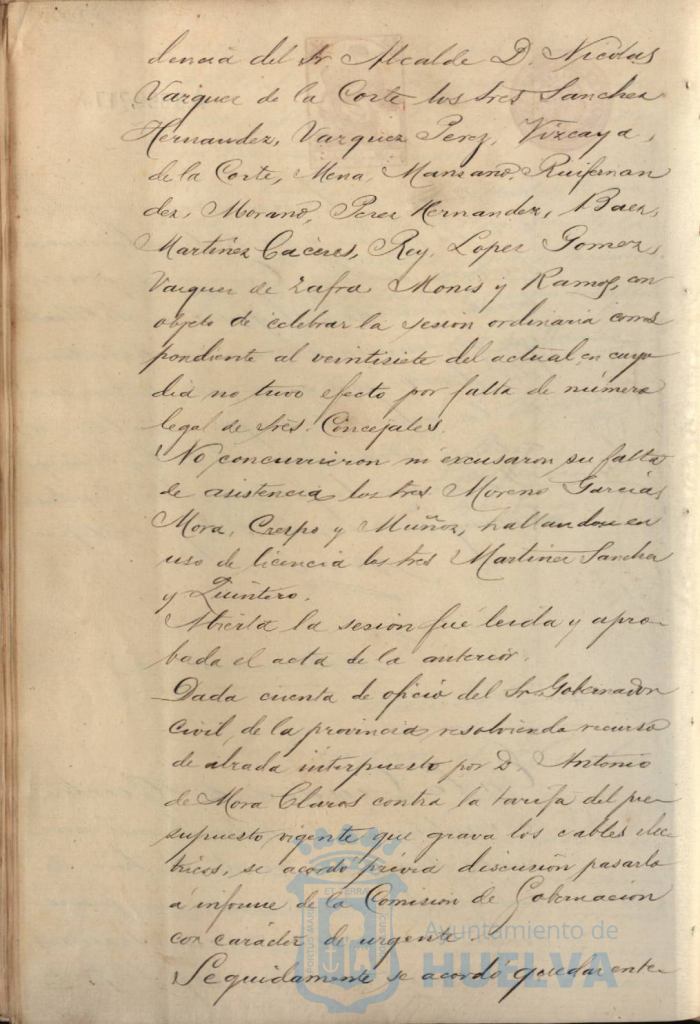 dencia del Sr Alcalde D. Nicolas
Vazquez de la Corte los Sres Sanchez
Hernandez, Vazquez Perez, Vizcaya,
de la Corte, Mena, Manzano, Ruifernan
dez, Morano, Perez Hernandez, Baez,
Martinez Caceres, Rey, Lopez Gomez,
Vazquez de Zafra, Monis y Ramos, con
objeto de celebrar la sesion ordinaria corres
pondiente al veintisiete del actual, en cuyo
dia no tuvo efecto por falta de número
legal de Sres. Concejales.
No concurrieron ni excusaron su falta
de asistencia los Sres Moreno Garcia,
Mora, Crespo y Muñoz, hallandose en
uso de licencia los Sres Martinez Sanchez
y Quintero.
Abierta la sesion fué leida y apro-
bada el acta de la anterior.
Dada cuenta de oficio del Sr. Gobernador
Civil de la provincia resolviendo recurso
de alzada interpuesto por D. Antonio
de Mora Claros contra la tarifa del pre-
supuesto vigente que grava los cables elec
tricos, se acordó previa discusion pasarlo
á informe de la Comision de Gobernacion
con carácter de urgente.
Seguidamente se acordó quedar ente-
Ayuntamiento de
HUELVA